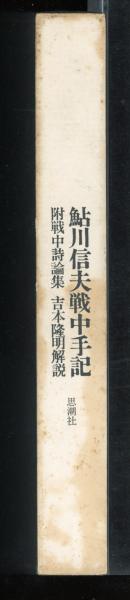 鮎川信夫戦中手記
附戦中詩論集 吉本隆明解説
思潮社